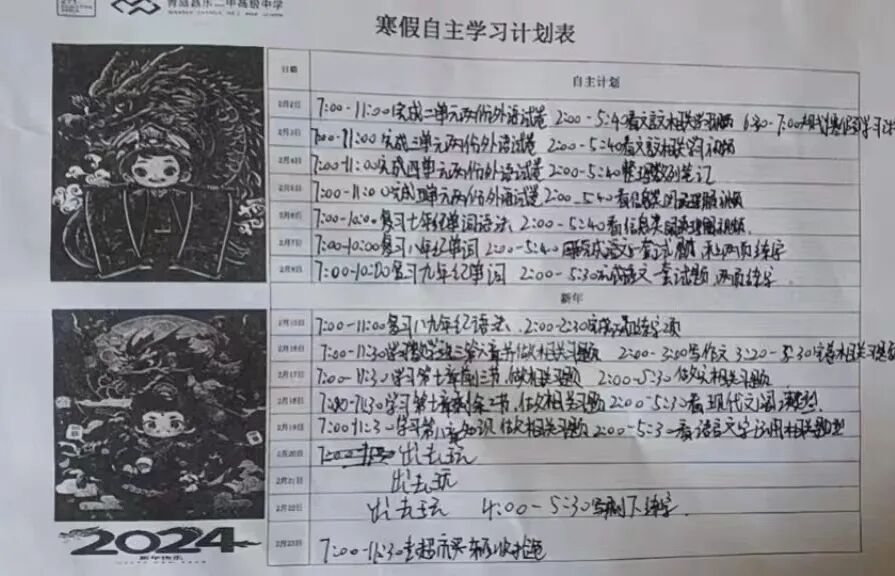 高级中学
寒假自主学习计划表
日期 自主计划
2月2日 7:00-11:00完成二单元两份外语试卷 2:00-5:40看文言文相关学习视频 6:30-7:00
2月3日 7:00-11:00完成三单元两份外语试卷 2:00-5:40看文言文相关学习视频
2月4日 7:00-11:00完成四单元两份外语试卷 2:00-5:40整理数列笔记
2月5日 7:00-11:00完成五单元两份外语试卷 2:00-5:40看信息类阅读理解视频
2月6日 7:00-10:00复习七年级单词语法 2:00-5:40看信息类阅读理解视频
2月7日 7:00-10:00复习八年级单词 2:00-5:40 完成语文一套试题 和两页练字
2月8日 7:00-10:00复习九年级单词 2:00-5:30完成语文一套试题,两页练字
新年
2月15日 7:00-11:00复习八九年级语法 2:00-2:30完成两页练字
2月16日 7:00-11:30学习数学 做相关习题 2:00-3:00写作文 3:20-5:30 相关习题
2月17日 7:00-11:30学习第七章 二节,做相关习题 2:00-5:30做 相关习题
2月18日 7:00-11:30学习第七章剩余二节,做相关习题 2:00-5:30看现代文阅读
2月19日 7:00-11:30学习第八章知识 做相关习题 2:00-5:30看语言文字运用相关题型
2月20日 出去玩
2月21日 出去玩
2月22日 出去玩 4:00-5:30写剩下练字
2月23日 7:00-11:30去超市买东西收拾
2024
新年快乐